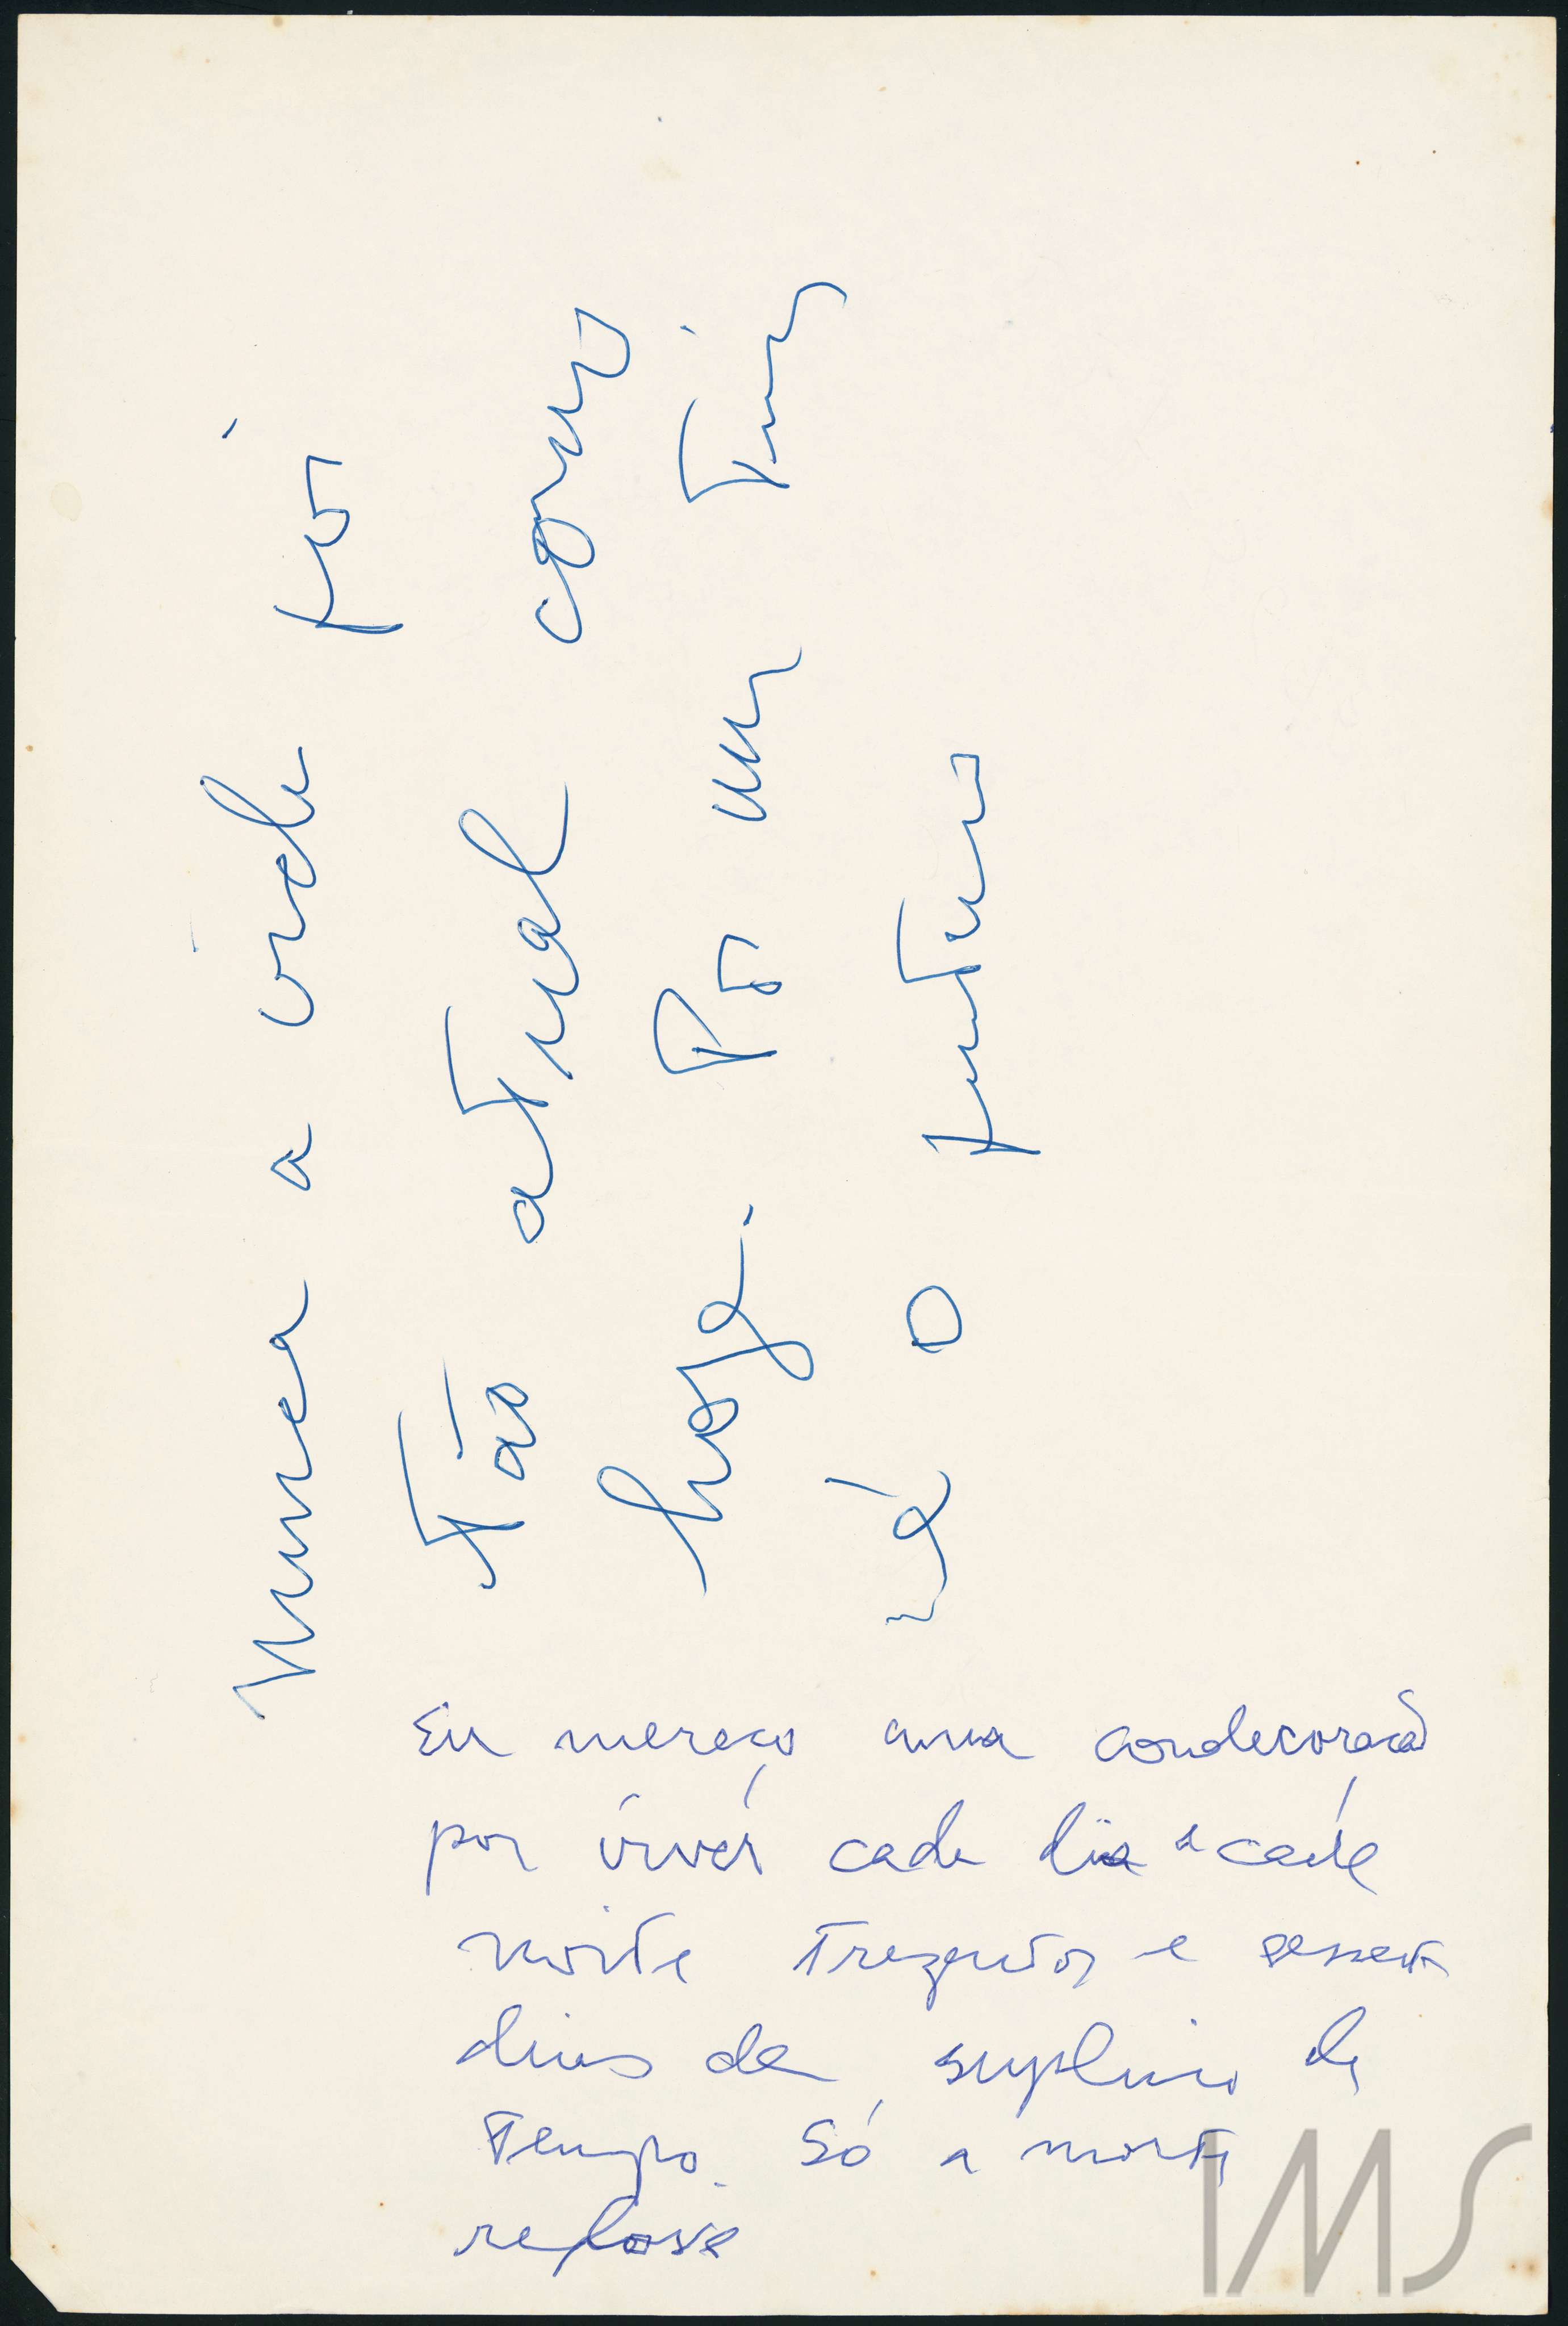 Nunca a vida foi
tão atual como
hoje. Por um triz
é o futuro
Eu mereço uma condecoração
por viver cada dia e cada
noite trezentos e sessenta
dias de suplício do
tempo. Só a morte
IMS